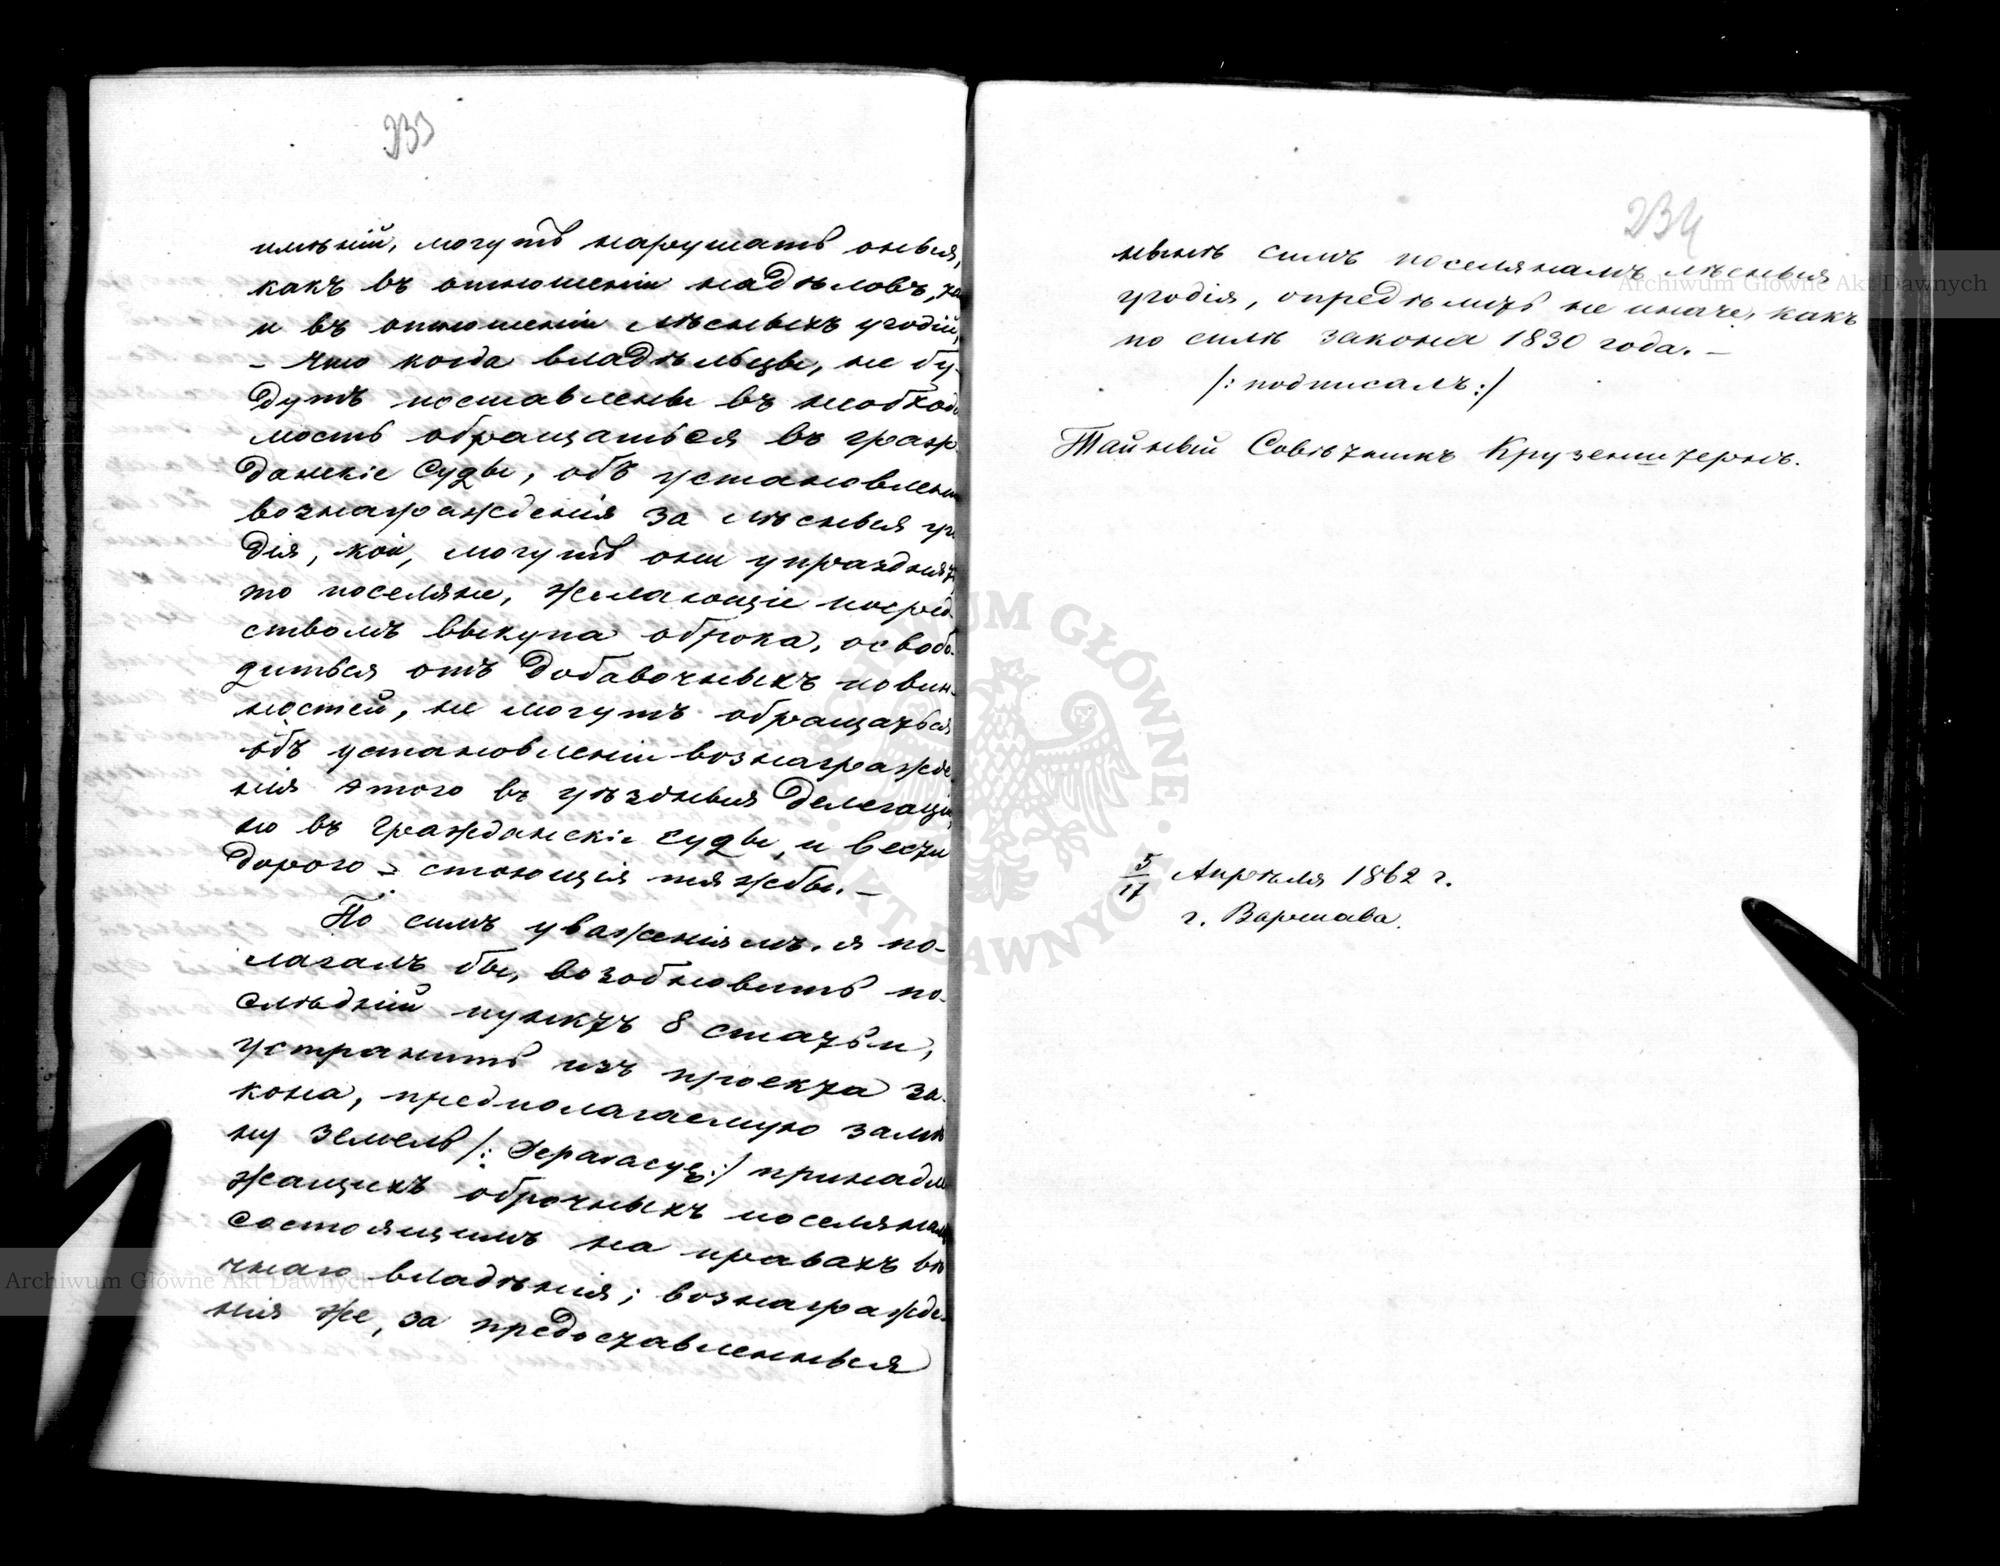 233
имѣній, могутъ нарушать оныя,
какъ въ отношеніи надѣловъ, та
и въ отношеніи лѣсныхъ угодій,
– что когда владѣльцы, не бу-
дутъ поставлены въ необходи
мость обращаться въ граж-
данскіе Суды, объ установлені
вознагражденія за лѣсныя уго
дія, кои, могутъ они упразднять
то поселяне, желающіе посред-
ствомъ выкупа оброка, освобо-
диться отъ добавочныхъ повин-
ностей, не могутъ обращаться
объ установленіи вознагражде-
нія этого въ уѣздныя Делегаціи,
но въ Гражданскіе Суды, и вести
дорого-стоющія тяжбы. –
По симъ уваженіямъ, я по-
лагалъ бы, возобновить по-
слѣдній пунктъ 8 статьи,
устранить изъ проекта за-
кона, предполагаемую замѣ
ну земель /: :/ принадле
жащихъ оброчныхъ поселянамъ
состоящимъ на правахъ вѣ
чнаго владѣнія; вознагражде-
нія же, за предоставленныя
234
нынѣ симъ поселянамъ лѣсныя
угодія, опредѣлить не иначе, какъ
по силѣ закона 1830 года. –
/: подписалъ :/
Тайный Совѣтникъ Крузенштернъ.
5/17 Апрѣля 1862 г.
г. Варшава.
Archiwum Główne Akt Dawnych
Archiwum Główne Akt Dawnych
ARCHIWUM GŁÓWNE AKT DAWNYCH